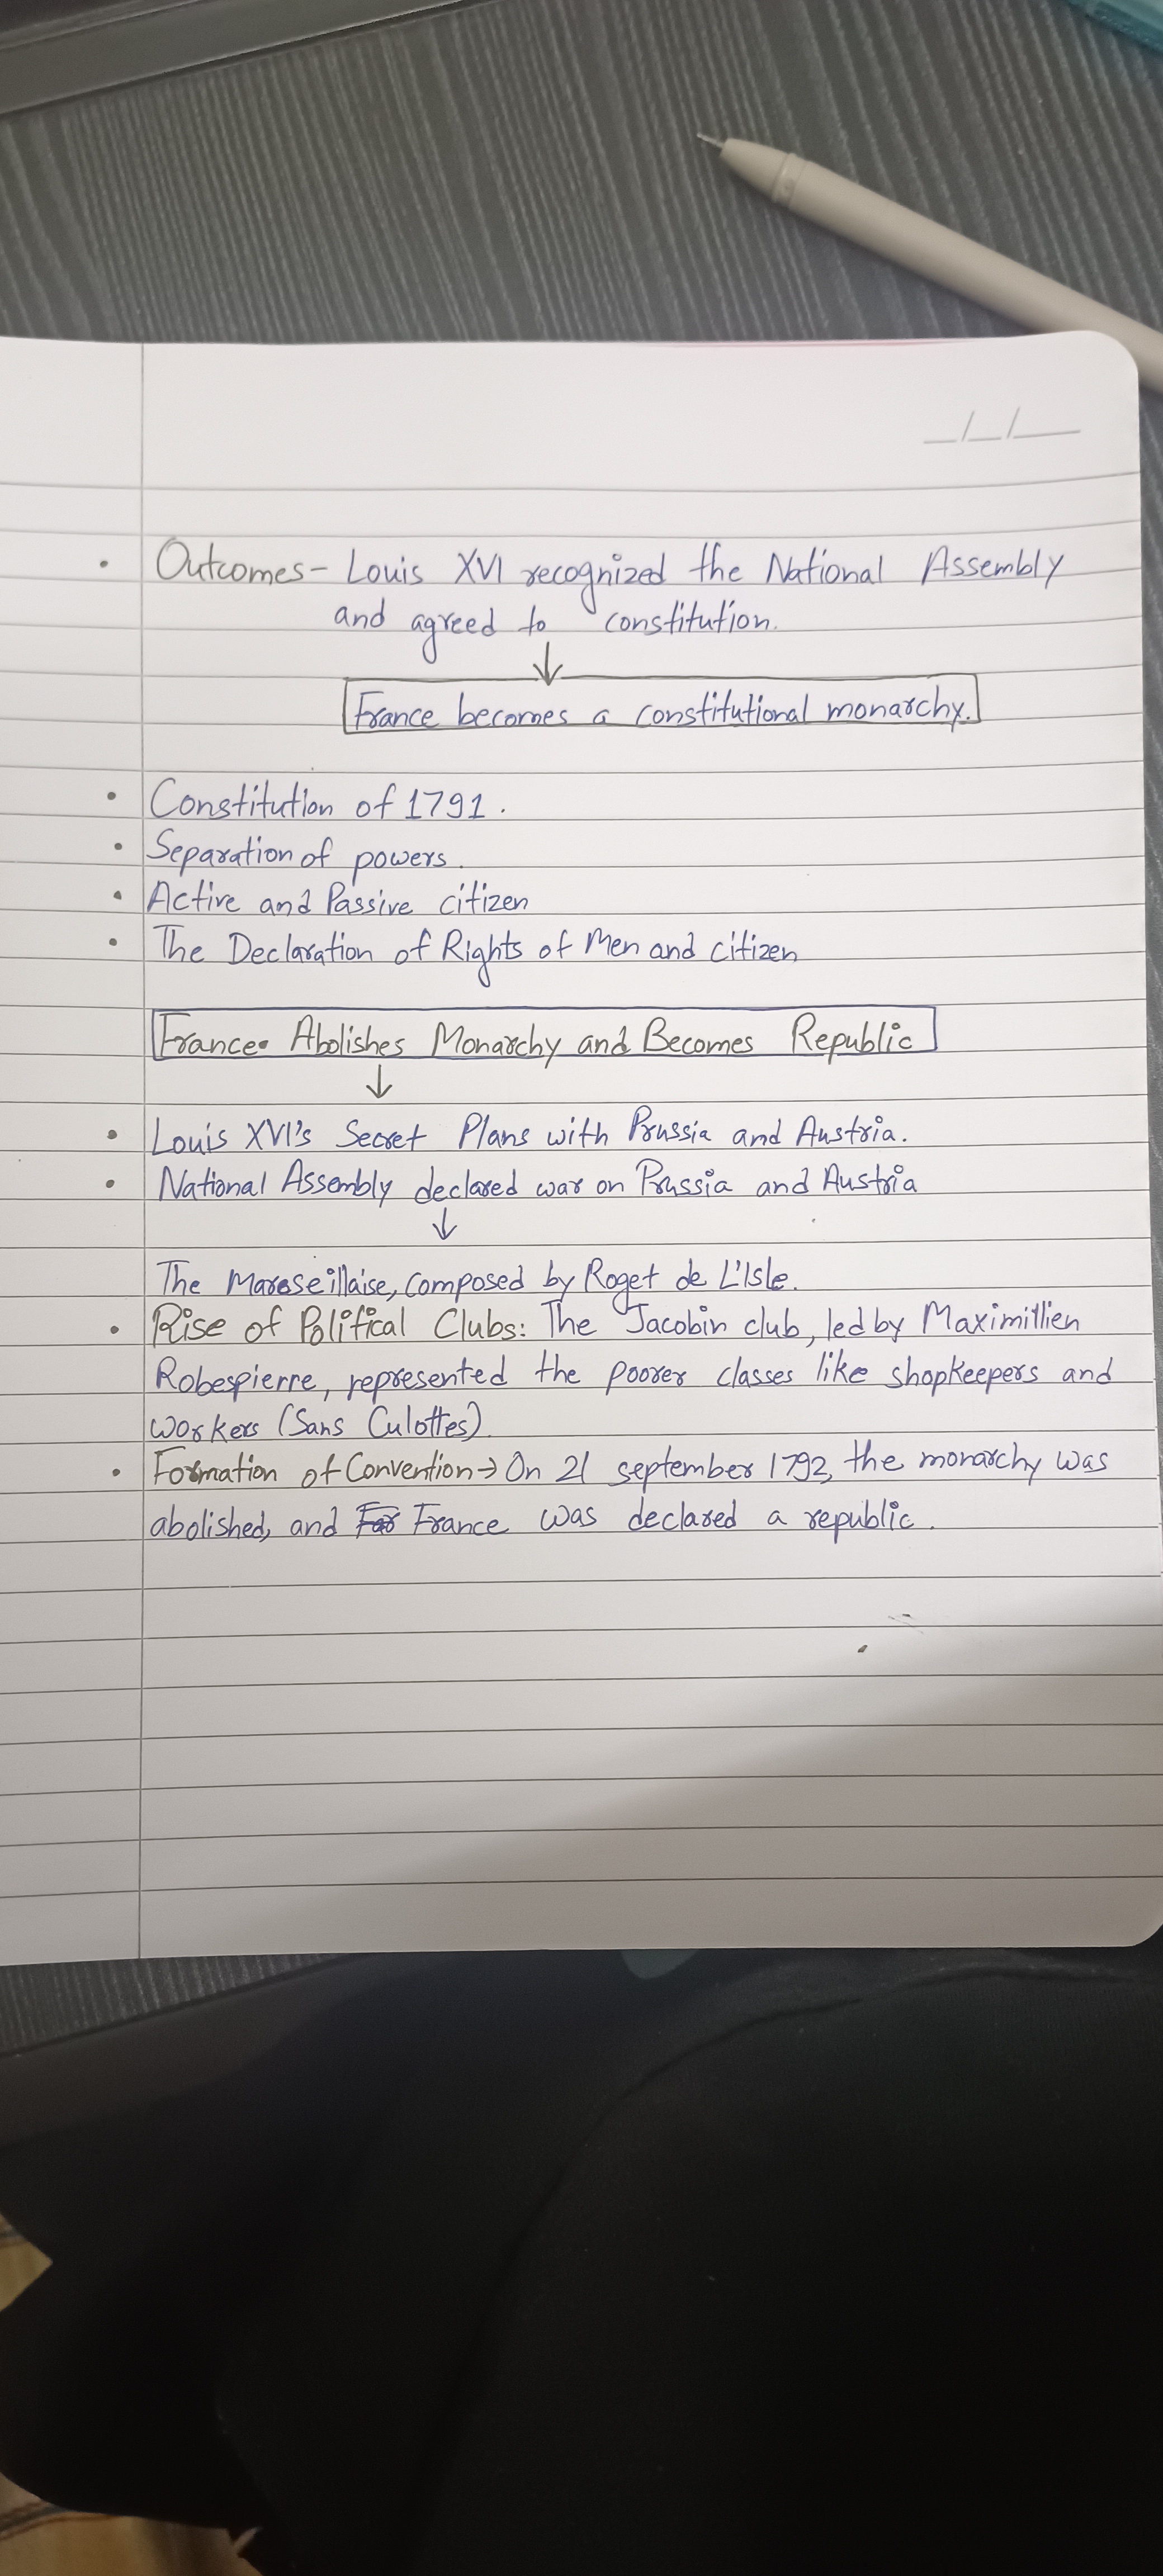 _/_/__
• Outcomes- Louis XVI recognized the National Assembly
and agreed to constitution.
↓
France becomes a constitutional monarchy.
• Constitution of 1791.
• Separation of powers.
• Active and Passive citizen
• The Declaration of Rights of Men and citizen
France Abolishes Monarchy and Becomes Republic
↓
• Louis XVI's Secret Plans with Prussia and Austria.
• National Assembly declared war on Prussia and Austria
↓
The Marseillaise, composed by Roget de L'Isle.
• Rise of Political Clubs: The Jacobin club, led by Maximillien
Robespierre, represented the poorer classes like shopkeepers and
workers (Sans Culottes)
• Formation of Convention → On 21 september 1792, the monarchy was
abolished, and France was declared a republic.